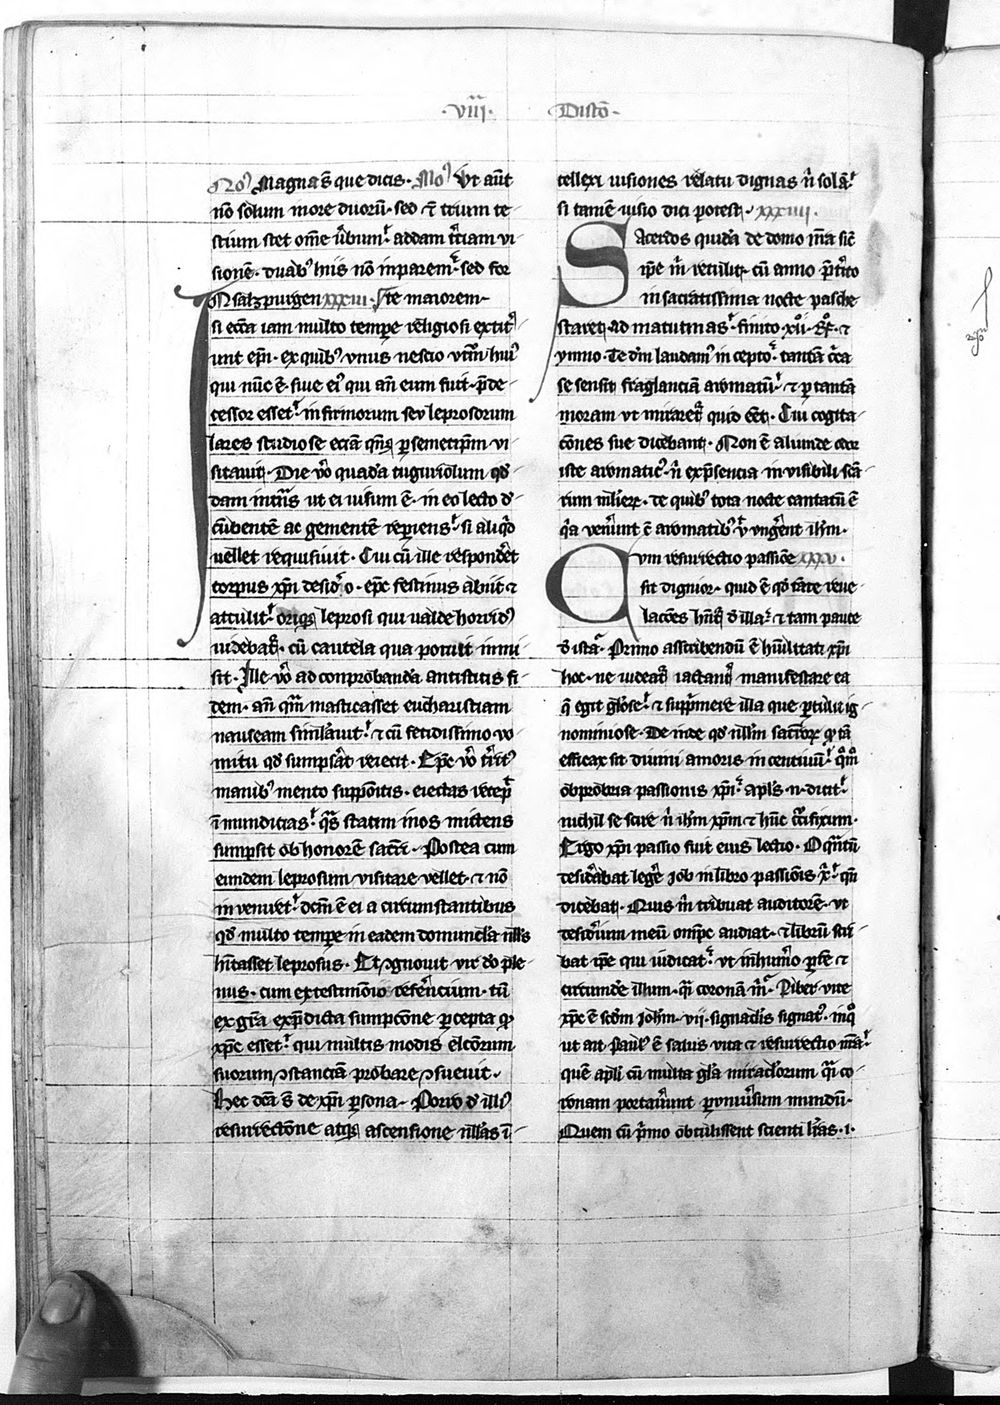 ·viij· Distō·
No' Magna sūt que dicis· Mo' Ut aūt
nō solum more duorū· sed ⁊ trium te-
stium stet om̄e ūbum· addam t̄ciam vi-
sionē· duabꝰ hiis nō inparem· sed for
IN salzpurgen xxxiii· ˢte maiorem·
si ecc̄a iam multo tempe religiosi extit̉-
unt ep̄i· ex quibꝰ vnus nescio vtrū hui'
qui nūc ē· siue eiꝰ qui an̄ eum fuit· p̄de-
cessor esset· infirmorum seu leprosorum
lares studiose ecīa qn̄qꝫ ꝑ semetip̄m vi-
sitauit· Die v̊ quadā tuguriolum qd̄-
dam int̄ns ut ei uisum ē· in eo lecto d'-
cūbentē ac gementē repiens· si aliqͥd
uellet requisiuit· Cui cū ille respondēt
corpus xp̄i desid̉o· ep̄c festinus abiit ⁊
attulit· oriqꝫ leprosi qui ualde horridꝰ
uidebat̉· cū cautela qua potuit inmi-
sit· Ille v̊ ad conprobandā antistitis fi-
dem· an̄ qͣm masticasset eucharistiam
nauseam simlauit· ⁊ cū fetidissimo vo-
mitu qd̄ sumpsāt reiecit· Ep̄c v̊ t̉ritꝰ
manibꝰ mento suppositis· eiectas recep̄
īmundicias· qͣs statim in os mittens
sumpsit ob honorē sacͣ̄ti· Postea cum
eundem leprosum visitare vellet· ⁊ nō
inueniret· dcm̄ ē ei a circumstantibus
qd̄ multo tempe in eadem domuncla nll̄s
hītasset leprosus· Et ꝯgnouit vir do ple-
nus· cum ex testimōio referēncium· tū
ex grā exp̄dicta sumpcōne ꝑcepta qͥ
xp̄c esset· qui multis modis elc̄orum
suorum ꝯstanciā probare ꝯsueuit·
Hec dc̄a s̄ de xp̄i ꝑsona· Porro d' illiꝰ
resurrectōne atqꝫ ascensione nll̄as ī-
tellexi uisiones relatu dignas n̄ solā·
si tam̄ē uisio dici potest· xxxiiii·
Sacerdos quidā de domo nr̄a sic̄
ip̄e m̄ retulit· cū anno p̄t̉ito
in sacratissima nocte pasche
staret ad matutinas· finito xii· Rͦ· ⁊
ymno· Te dm̄ laudamꝰ incepto· tantā c̉ca
se sensit fraglanciā aromatū· ⁊ ꝑ tantā
moram vt miraret̉ quid eēt· Cui cogita-
cōnes sue dicebant· Non ē aliunde odor
iste aromaticꝰ· n̄ ex p̄sencia inuisibili scā-
rum mulierꝝ· de quibꝰ tota nocte cantatū ē
qͣ uen̉unt ē aromatibꝰ vt vng̉ent ih̄m·
Cum resurrectio passiōe xxxv·
sit dignior· quid ē qd̄ fate reue-
lacōes hn̄t̉ d' illa· ⁊ tam pauce
d' ista· Primo ascribendū ē hūilitati xp̄i
hoc· ne uideat̉ iactant̉ manifestare ea
q̄ egit gl̄ose· ⁊ supp̉mere illa que ꝑtulit ig-
nominiose· De inde qd̄ nllm̄ sacͣ̄torꝝ qͦ tā
efficax sit diuini amoris incentiuū· qͣm
obprobria passionis xp̄i· apl̄s n̄ dicit·
nichil se scire n̄ ih̄m xp̄m ⁊ hūc c̉cifixum·
Ergo xp̄i passio fuit eius lectio· O qn̄tū
desid̉abat leḡe Job in libro passiōis xͥ· qn̄
dicebat· Quis m̄ tribuat auditorē· vt
desid̉ium meū omp̄c audiat· ⁊ librū scri-
bat ip̄e qui iudicat· vt in hum̉o pfe ⁊
circumde illum· qͣi coronā m̄· Liber vite
xp̄c ē scd̄m Joh̄m· vij· signaclis signatꝰ· in qͦ
ut ait Paulꝰ ē salus vita ⁊ resurrectio nr̄a·
quē apl̄i cū multa gl̄a miraclorum qͣi co-
ronam portaủunt ꝑ vniủsum mundū·
Quem cū p̉mo obtulissent scienti lr̄as· i·